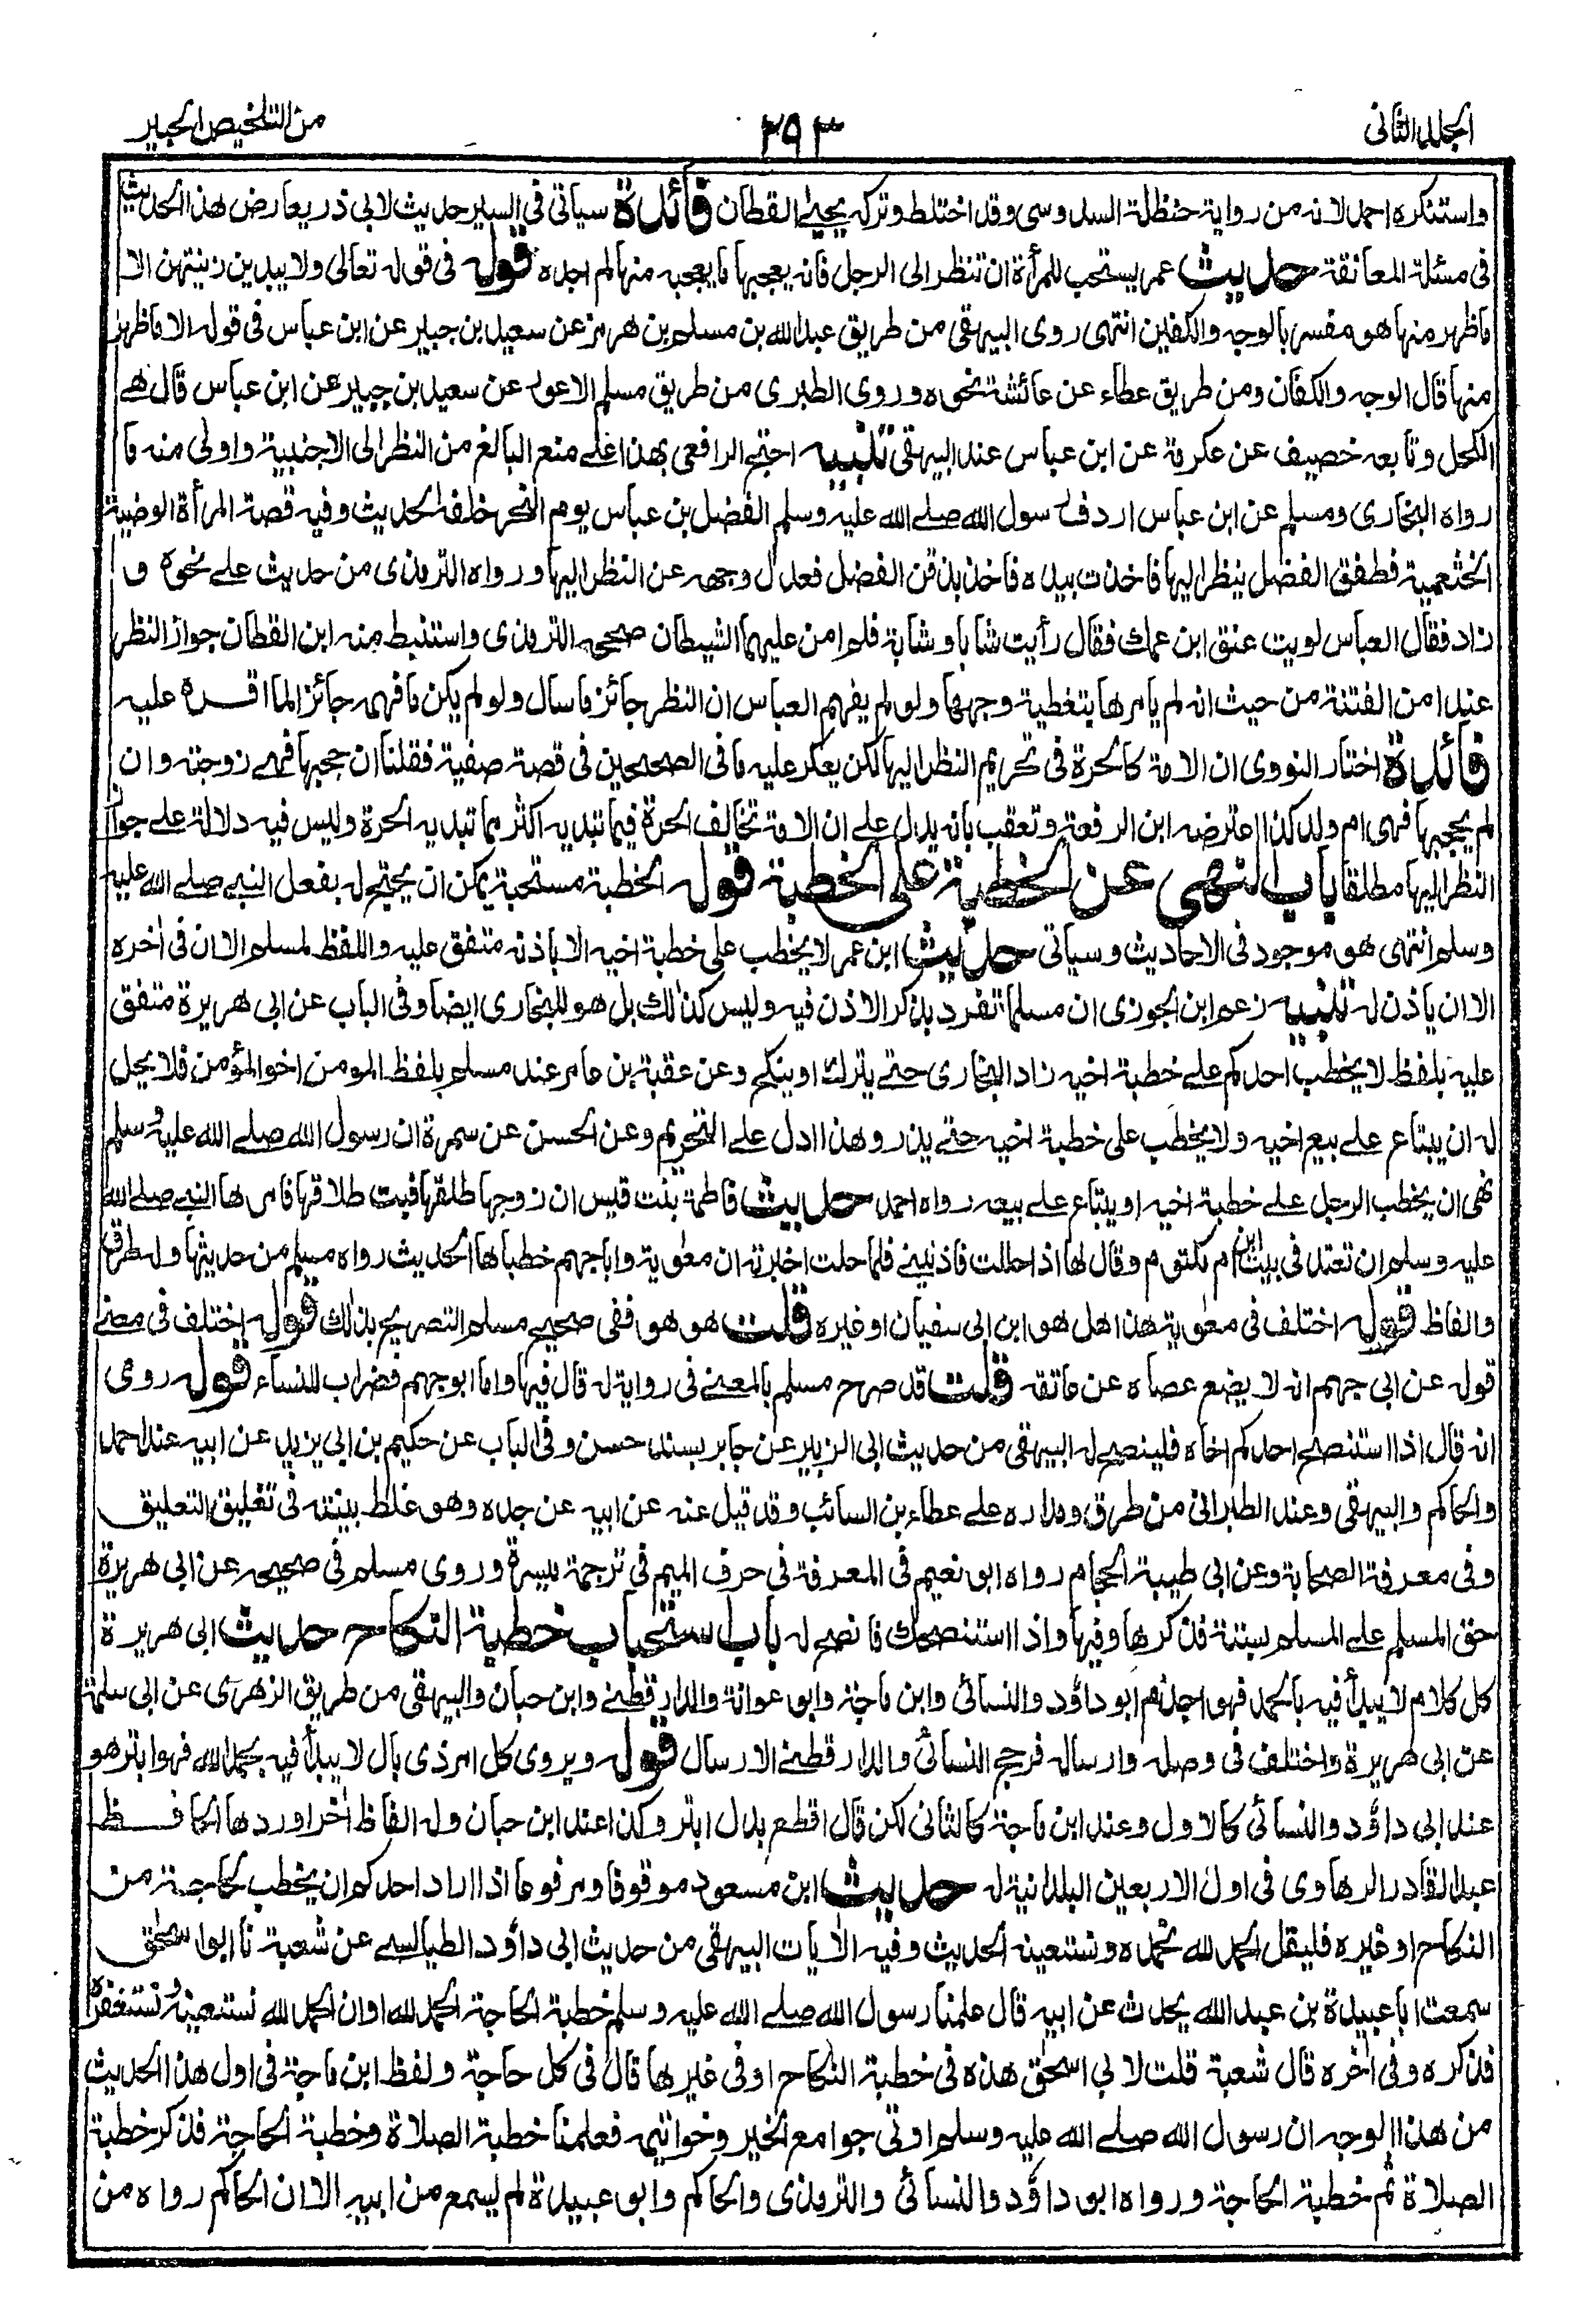 المجلد الثانى
٢٩٣
من التلخيص الحبير
واستنكره احمد لانه من رواية حنظلة السدوسى وقد اختلط وتركه يحيى القطان فائدة سياتى فى السير حديث لابى ذر يعارض هذا الحديث
فى مسئلة المعانقة حديث عمر يستحب للمرأة ان تنظر الى الرجل فانه يعجبها ما يعجبه منها لم اجده قوله فى قوله تعالى ولا يبدين زينتهن الا
ما ظهر منها هو مفسر بالوجه والكفين انتهى روى البيهقى من طريق عبد الله بن مسلم بن هرمز عن سعيد بن جبير عن ابن عباس فى قوله الا ما ظهر
منها قال الوجه والكفان ومن طريق عطاء عن عائشة نحوه وروى الطبرى من طريق مسلم الاعور عن سعيد بن جبير عن ابن عباس قال هے
الكحل وتابعه خصيف عن عكرمة عن ابن عباس عند البيهقى تنبيه احتج الرافعى بهذا علے منع البالغ من النظر الى الاجنبية واولى منه ما
رواه البخارى ومسلم عن ابن عباس اردف رسول الله صلے الله عليه وسلم الفضل بن عباس يوم النحر خلفه الحديث وفيه قصة المرأة الوضيئة
الخثعمية فطفق الفضل ينظر اليها فاخذت بيده فاخذ بذقن الفضل فعدل وجهه عن النظر اليها ورواه الترمذى من حديث علے نحوه و
زاد فقال العباس لويت عنق ابن عمك فقال رأيت شابا وشابة فلم امن عليهما الشيطان صححه الترمذى واستنبط منه ابن القطان جواز النظر
عند امن الفتنة من حيث انه لم يامرها بتغطية وجهها ولو لم يفهم العباس ان النظر جائز ما سال ولو لم يكن ما فهمه جائز الما اقره عليه
فائدة اختار النووى ان الامة كالحرة فى تحريم النظر اليها لكن يعكر عليه ما فى الصحيحين فى قصة صفية فقلنا ان حجبها فهے زوجته وان
لم يحجبها فهى ام ولد كذا اعترضه ابن الرفعة وتعقب بانه يدل علے ان الامة تخالف الحرة فيما تبديه اكثر مما تبديه الحرة وليس فيه دلالة علے جواز
النظر اليها مطلقا باب النهى عن الخطبة على الخطبة قوله الخطبة مستحبة يمكن ان يحتج له بفعل النبى صلے الله عليه
وسلم انتهى هو موجود فى الاحاديث وسياتى حديث ابن عمر لا يخطب على خطبة اخيه الا باذنه متفق عليه واللفظ لمسلم الا ان فى اخره
الا ان ياذن له تنبيه زعم ابن الجوزى ان مسلما تفرد بذكر الاذن فيه وليس كذلك بل هو للبخارى ايضا وفى الباب عن ابى هريرة متفق
عليه بلفظ لا يخطب احدكم علے خطبة اخيه زاد البخارى حتے يترك او ينكح وعن عقبة بن عامر عند مسلم بلفظ المومن اخو المؤمن فلا يحل
له ان يبتاع علے بيع اخيه ولا يخطب على خطبة اخيه حتے يذر وهذا ادل علے التحريم وعن الحسن عن سمرة ان رسول الله صلے الله عليه وسلم
نهى ان يخطب الرجل علے خطبة اخيه او يبتاع علے بيعه رواه احمد حديث فاطمة بنت قيس ان زوجها طلقها فبت طلاقها فامرها النبے صلے الله
عليه وسلم ان تعتد فى بيت ابن ام مكتوم وقال لها اذا حللت فاذنينے فلما حلت اخبرته ان معوية وابا جهم خطباها الحديث رواه مسلم من حديثها وله طرق
والفاظ قوله اختلف فى معوية هذا هل هو ابن ابى سفيان او غيره قلت هو هو ففى صحيح مسلم التصريح بذلك قوله اختلف فى معنے
قوله عن ابى جهم انه لا يضع عصاه عن عاتقه قلت قد صرح مسلم بالمعنے فى رواية له قال فيها واما ابو جهم فضراب للنساء قوله روى
انه قال اذا استنصح احدكم اخاه فلينصح له البيهقى من حديث ابى الزبير عن جابر بسند حسن وفى الباب عن حكيم بن ابى يزيد عن ابيه عند احمد
والحاكم والبيهقى وعند الطبرانى من طرق ومداره علے عطاء بن السائب وقد قيل عنه عن ابيه عن جده وهو غلط بينته فى تغليق التعليق
وفى معرفة الصحابة وعن ابى طيبة الحجام رواه ابو نعيم فى المعرفة فى حرف الميم فى ترجمة ميسرة وروى مسلم فى صحيحه عن ابى هريرة
حق المسلم علے المسلم ستة فذكرها وفيها واذا استنصحك فانصح له باب استحباب خطبة النكاح حديث ابى هريرة
كل كلام لا يبدأ فيه بالحمد فهو اجذم ابو داؤد والنسائى وابن ماجة وابو عوانة والدارقطنے وابن حبان والبيهقى من طريق الزهرى عن ابى سلمة
عن ابى هريرة واختلف فى وصله وارساله فرجح النسائى والدارقطنے الارسال قوله ويروى كل امر ذى بال لا يبدأ فيه بحمد الله فهو ابتر هو
عند ابى داؤد والنسائى كالاول وعند ابن ماجة كالثانى لكن قال اقطع بدل ابتر وكذا عند ابن حبان وله الفاظ اخر اوردها الحافظ
عبد القادر الرهاوى فى اول الاربعين البلدانية له حديث ابن مسعود موقوفا ومرفوعا اذا اراد احدكم ان يخطب لحاجة من
النكاح او غيره فليقل الحمد لله نحمده ونستعينه الحديث وفيه الايات البيهقى من حديث ابى داؤد الطيالسے عن شعبة نا ابو اسحٰق
سمعت ابا عبيدة بن عبد الله يحدث عن ابيه قال علمنا رسول الله صلے الله عليه وسلم خطبة الحاجة الحمد لله او ان الحمد لله نستعينه ونستغفره
فذكره وفى اخره قال شعبة قلت لابى اسحٰق هذه فى خطبة النكاح او فى غيرها قال فى كل حاجة ولفظ ابن ماجة فى اول هذا الحديث
من هذا الوجه ان رسول الله صلے الله عليه وسلم اوتى جوامع الخير وخواتيمه فعلمنا خطبة الصلاة وخطبة الحاجة فذكر خطبة
الصلاة ثم خطبة الحاجة ورواه ابو داؤد والنسائى والترمذى والحاكم وابو عبيدة لم يسمع من ابيه الا ان الحاكم رواه من